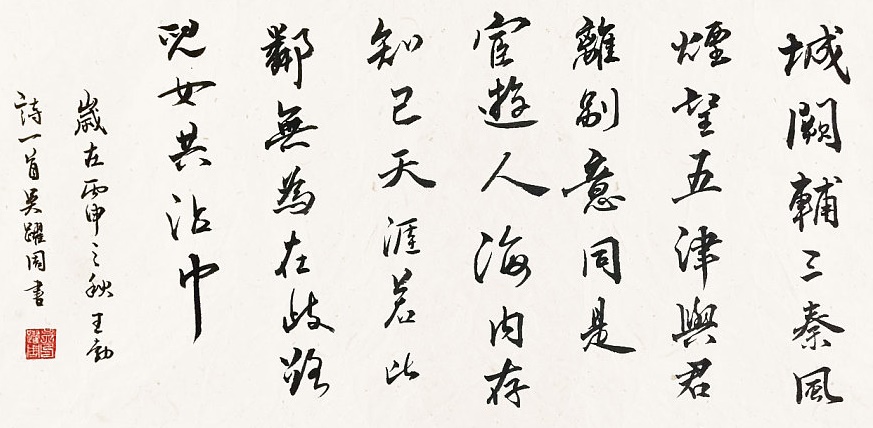 城闕輔三秦風
煙望五津與君
離別意同是
宦遊人海内存
知己天涯若比
鄰無為在歧路
兒女共沾巾
歲在丙申之秋王勃
詩一首吳躍周書